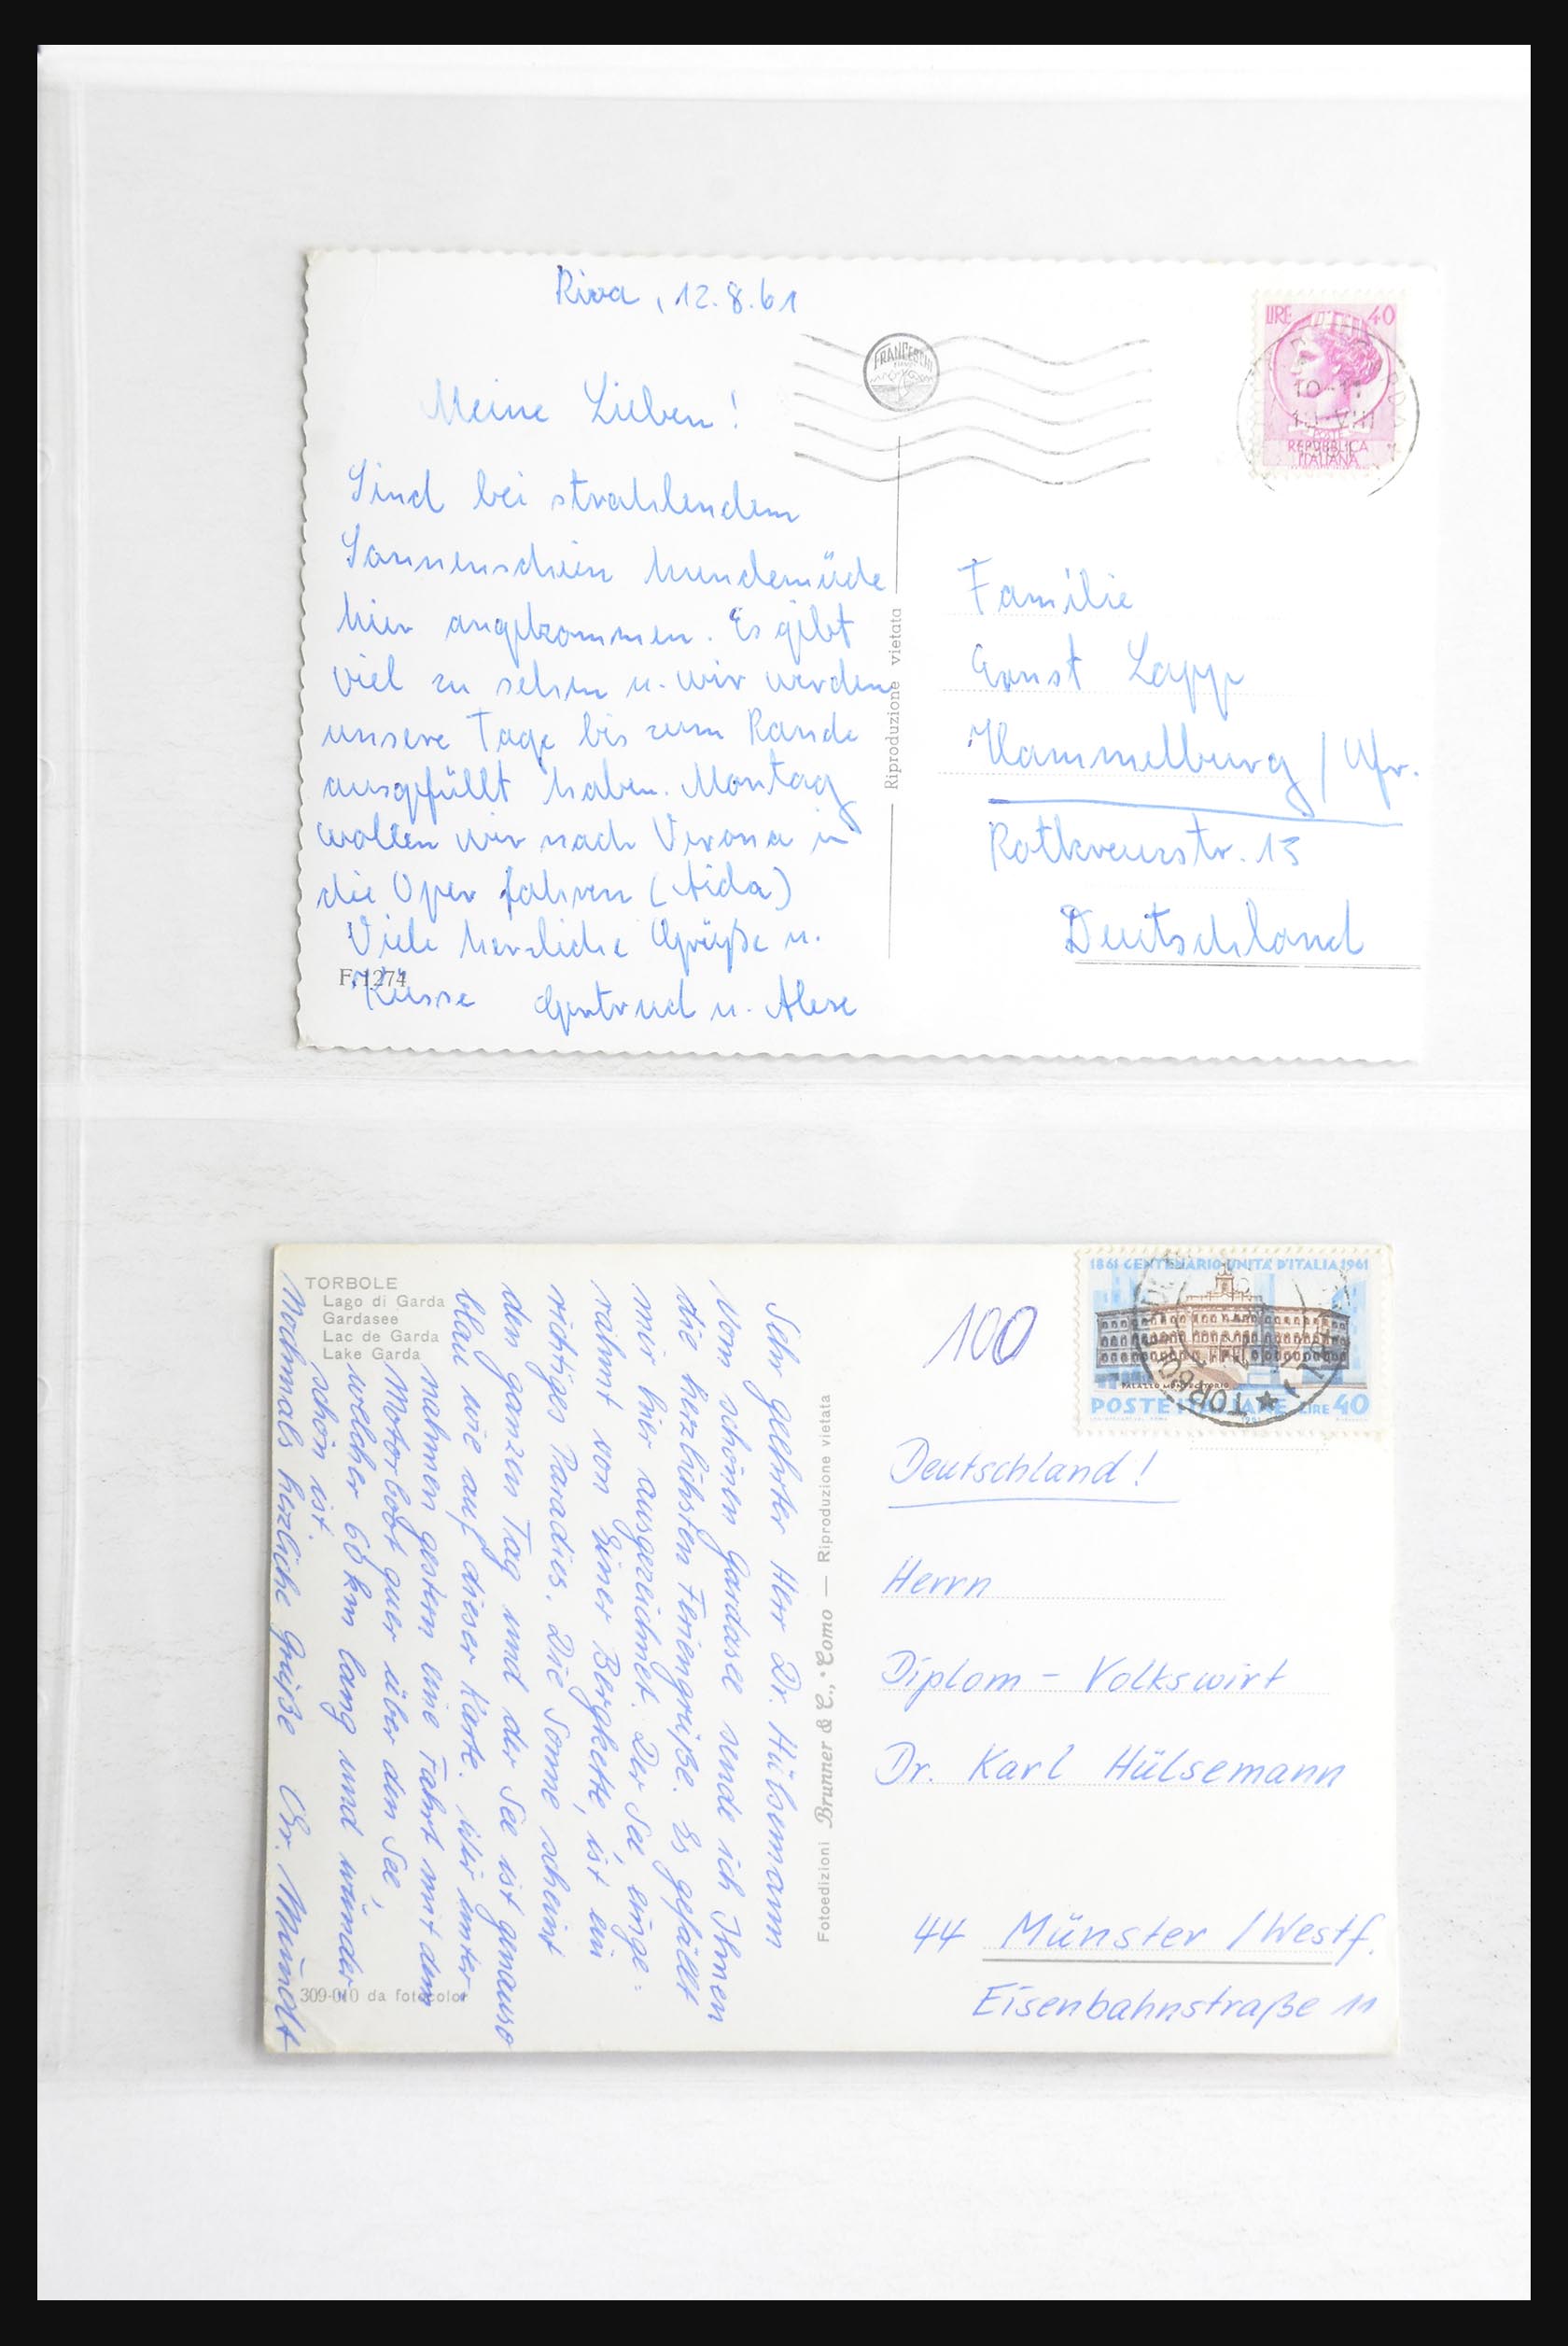 Riva, 12.8.61
Meine Lieben!
Sind bei strahlendem
Sonnenschein hundemüde
hier angekommen. Es gibt
viel zu sehen u. wir werden
unsere Tage bis zum Rande
ausgefüllt haben. Montag
wollen wir nach Verona in
die Oper fahren (Aida)
Viele herzliche Grüße u.
Küsse Gertrud u.
F. 1274
Riproduzione vietata
FRANCESCHI
LIRE 40
POSTE
REPUBBLICA
ITALIANA
VIII
Familie
Ernst Lapp
Hammelburg / Ufr.
Rotkreuzstr. 13
Deutschland
TORBOLE
Lago di Garda
Gardasee
Lac de Garda
Lake Garda
Sehr geehrter Herr Dr. Hülsemann
Vom schönen Gardasee sende ich Ihnen
die herzlichsten Feriengrüße. Es gefällt
mir hier ausgezeichnet. Der See, einge-
rahmt von einer Bergkette, ist ein
richtiges Paradies. Die Sonne scheint
den ganzen Tag und der See ist genauso
blau wie auf dieser Karte. Wir unter-
nahmen gestern eine Fahrt mit dem
Motorboot quer über den See,
welcher 60 km lang und wunder-
schön ist.
Nochmals herzliche Grüße Chr. Mundt
309-010 da fotocolor
Fotoedizioni Brunner & C., · Como — Riproduzione vietata
100
1861 CENTENARIO UNITA D'ITALIA 1961
PALAZZO MONTECITORIO
POSTE ITALIANE LIRE 40
TORBO
Deutschland!
Herrn
Diplom - Volkswirt
Dr. Karl Hülsemann
44 Münster / Westf.
Eisenbahnstraße 11